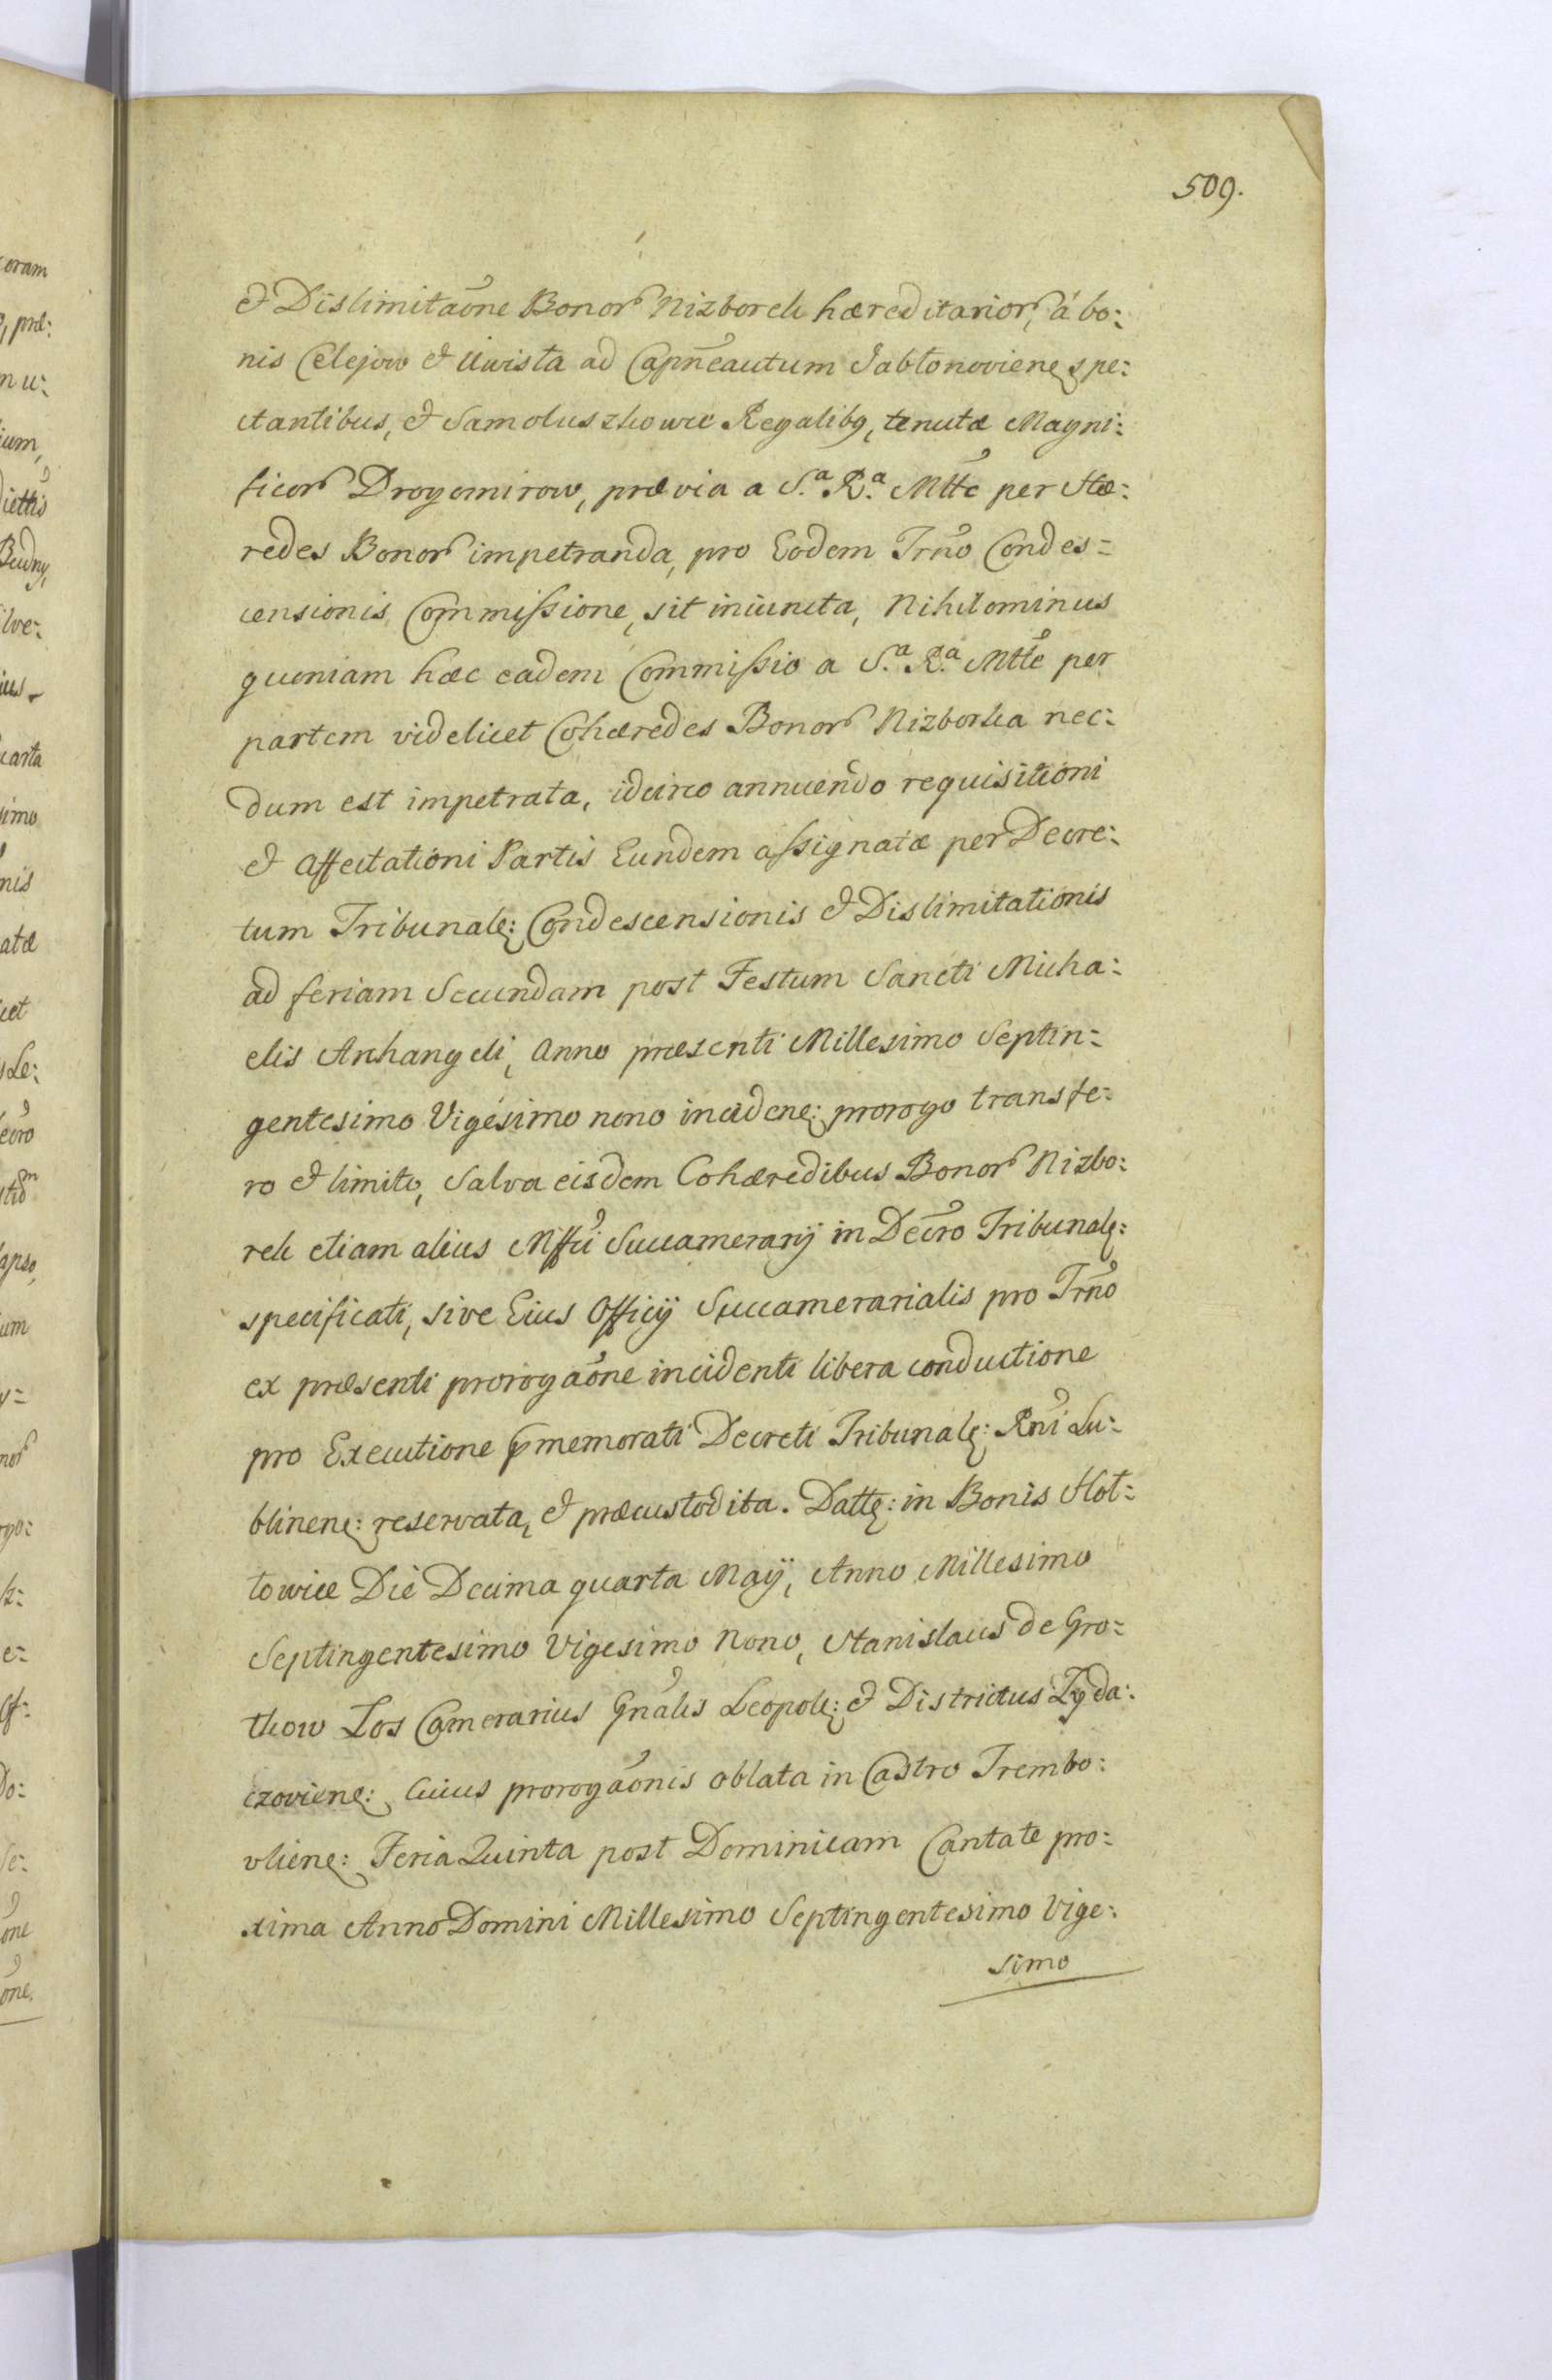 509.
& Dislimitaõne Bonor Nizborek hæreditarior, á bo:
nis Celejow & Uwisla ad Capneautum Jabłonoviene spe:
ctantibus, & Samoluszkowce Regalibq, tenutæ Magni:
ficor Drogomirow, prævia a S.ª R.ª Mtte per Hæ:
redes Bonor impetranda, pro Eodem Trno Condes=
censionis Commissione, sit iniuncta, Nihilominus
quoniam hæc eadem Commissio a S.ª R.ª Mtte per
partem videlicet Cohæredes Bonor Nizborka nec:
dum est impetrata, idcirco annuendo requisitioni
& affectationi Partis Eundem assignatæ per Decre:
tum Tribunale: Condescensionis & Dislimitationis
ad feriam Secundam post Festum Sancti Micha:
elis Archangeli, Anno præsenti Millesimo Septin=
gentesimo Vigesimo nono incidene: prorogo transfe:
ro & limito, Salva eisdem Cohæredibus Bonor Nizbo:
rek etiam alius Mffci Succamerarij in Decro Tribunale:
specificati, sive Eius Officij Succamerarialis pro Trno
ex præsenti prorogaõne incidenti libera conductione
pro Executione pmemorati Decreti Tribunale: Rni Lu:
blinene: reservata, & præcustodita. Datte: in Bonis Hot:
towice Die Decima quarta Maij, Anno Millesimo
Septingentesimo Vigesimo Nono, Stanislaus de Gro:
tkow Łos Camerarius Gnalis Leopole: & Districtus Zyda:
czoviene: Cuius prorogaõnis oblata in Castro Trembo:
vliene: Feria Quinta post Dominicam Cantate pro:
xima Anno Domini Millesimo Septingentesimo Vige:
simo